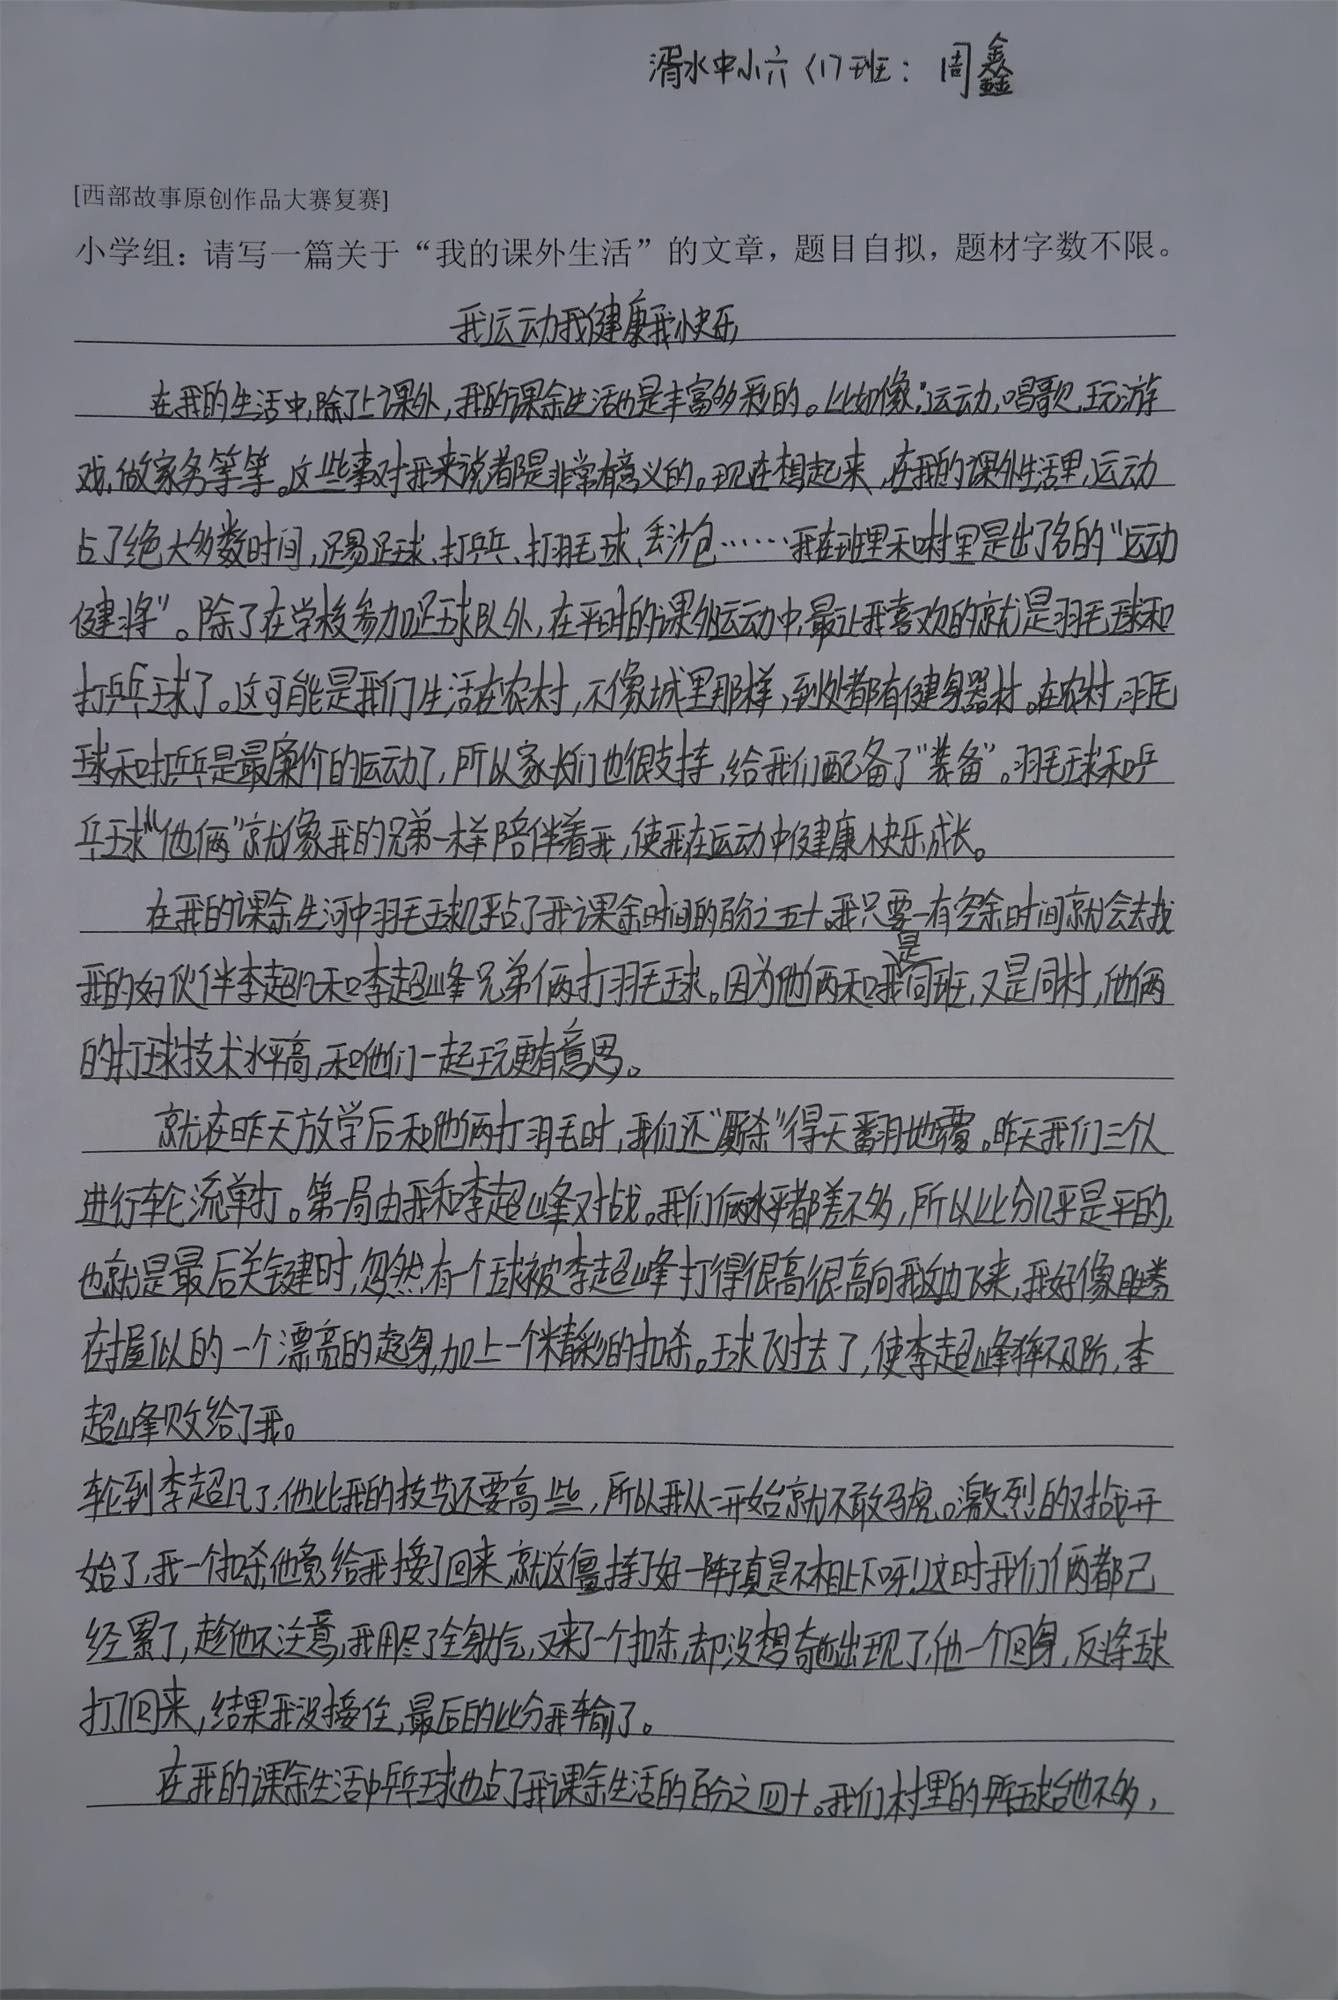 湑水中小六〈1〉班：周鑫
[西部故事原创作品大赛复赛]
小学组：请写一篇关于“我的课外生活”的文章，题目自拟，题材字数不限。
我运动我健康我快乐
在我的生活中，除了上课外，我的课余生活也是丰富多彩的。比如像：运动，唱歌，玩游
戏，做家务等等。这些事对我来说都是非常有意义的。现在想起来，在我的课外生活里，运动
占了绝大多数时间，踢足球、打乒乓、打羽毛球、丢沙包……我在班里和村里是出了名的“运动
健将”。除了在学校参加足球队外，在平时的课外运动中，最让我喜欢的就是羽毛球和
打乒乓球了。这可能是我们生活在农村，不像城里那样，到处都有健身器材。在农村，羽毛
球和打乒乓是最廉价的运动了，所以家长们也很支持，给我们配备了“装备”。羽毛球和乒
乓球“他俩”就像我的兄弟一样陪伴着我，使我在运动中健康快乐成长。
在我的课余生河中羽毛球几乎占了我课余时间的百分之五十。我只要一有空余时间就会去找
我的好伙伴李超凡和李超峰兄弟俩打羽毛球。因为他俩和我是同班，又是同村，他俩
的打球技术水平高，和他们一起玩更有意思。
就在昨天放学后和他俩打羽毛时，我们还“厮杀”得天翻地覆。昨天我们三个人
进行轮流单打。第一局由我和李超峰对战。我们俩水平都差不多，所以比分几乎是平的，
也就是最后关键时，忽然，有一个球被李超峰打得很高很高向我这边飞来，我好像胜券
在握似的一个漂亮的起身，加上一个精彩的扣杀。球飞过去了，使李超峰猝不及防，李
超峰败给了我。
轮到李超凡了，他比我的技艺还要高一些，所以我从一开始就不敢马虎。激烈的对战开
始了，我一个扣杀，他竟给我接了回来，就这僵持了好一阵子真是不相上下呀！这时我们俩都已
经累了，趁他不注意，我用尽了全身力气，又来了一个扣杀，却没想奇迹出现了，他一个回身，反将球
打了回来，结果我没接住，最后的比分我输了。
在我的课余生活中乒乓球也占了我课余生活的百分之四十。我们村里的乒乓球台也不多，